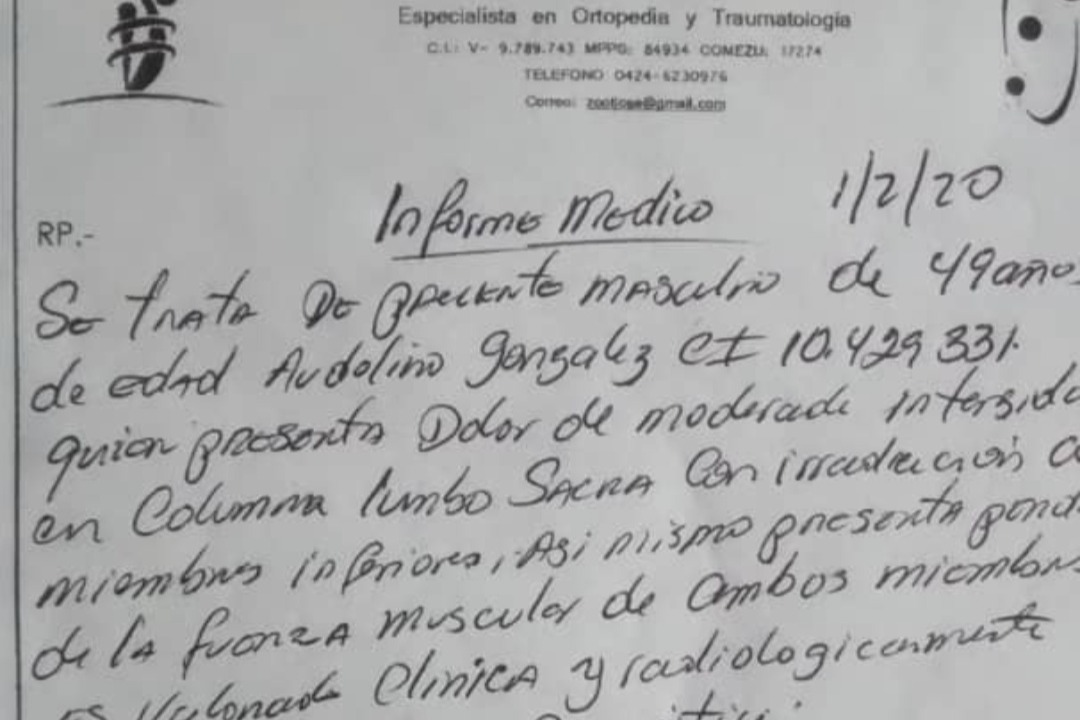 Especialista en Ortopedia y Traumatología
C.I.: V- 9.789.743 MPPS: 84934 COMEZU: 17274
TELEFONO 0424-6230976
Correo: zootiose@gmail.com
Informe Medico 1/2/20
RP.-
Se trata De paciente masculino de 49 años
de edad Audolino Gonzalez CI 10.429 331.
quien presenta Dolor de moderada intensida
en Columna lumbo SACRA Con irradiación a
miembros inferiores, Asi mismo presenta perdi
de la fuerza muscular de ambos miembros
es Valorado Clinica y radiologicamente